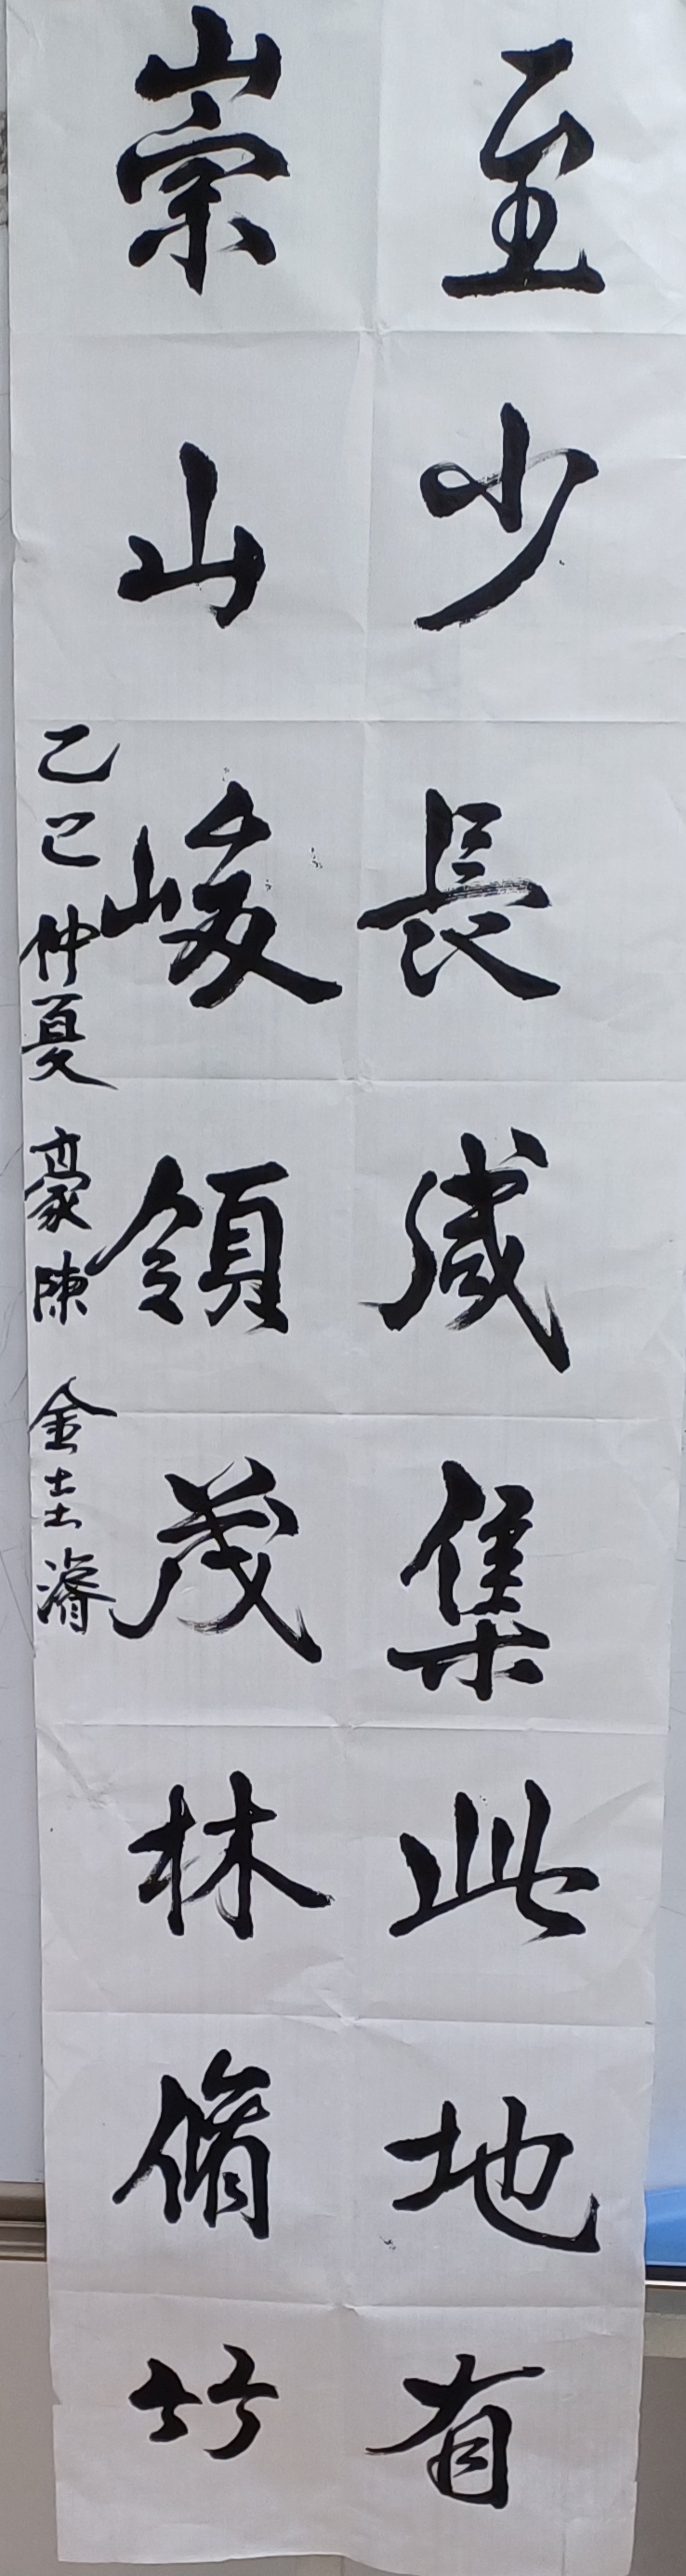 至少長咸集此地有
崇山峻領茂林脩竹
乙巳仲夏 豪陳 金圭濬